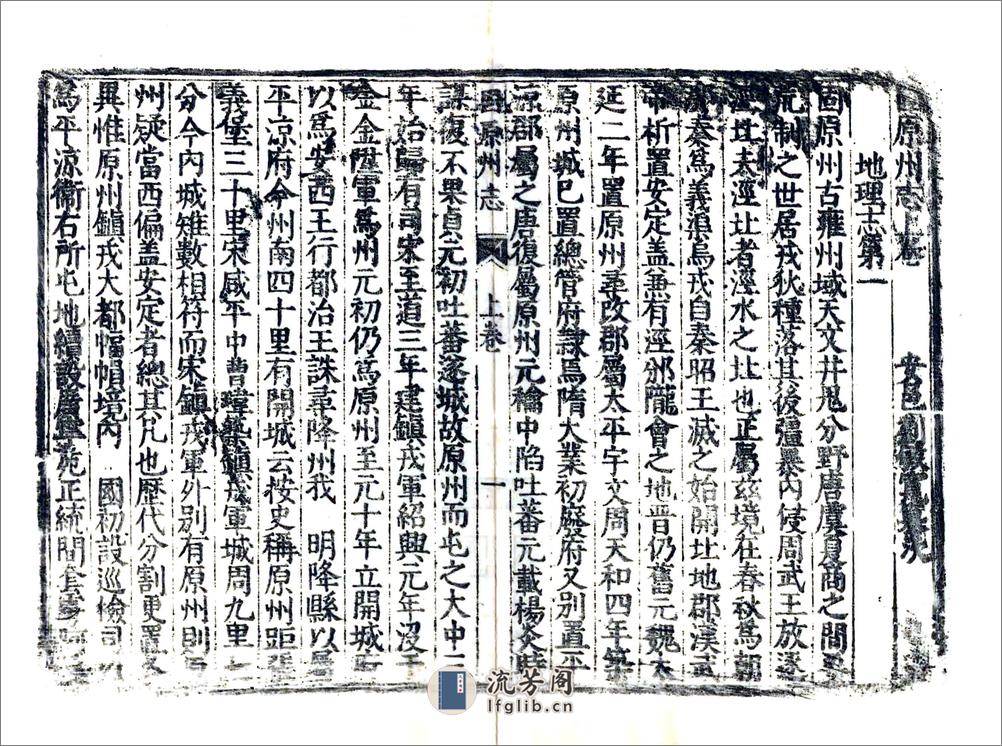 固原州志上卷 安邑劉敏寬
地理志第一
固原州古雍州域天文井鬼分野唐虞夏商之間
荒制之世居戎狄種落其後彊暴內侵周武王放逐
涇北太涇北者涇水之北也正屬茲境在春秋為朝
秦為義渠烏戎自秦昭王滅之始開北地郡漢武
帝析置安定盖兼有涇邠隴會之地晉仍舊元魏太
延二年置原州尋改郡屬太平宇文周天和四年築
原州城已置總管府隷焉隋大業初廢府又別置平
涼郡屬之唐復屬原州元和中陷吐蕃元載楊炎時
固原州志 上卷 一
謀復不果貞元初吐蕃遂城故原州而屯之大中三
年始歸有司宋至道三年建鎮戎軍紹興元年沒于
金金陞軍為州元初仍為原州至元十年立開城
以為安西王行都治王誅尋降州我 明降縣以
平涼府今州南四十里有開城云按史稱原州距
義堡三十里宋咸平中曹瑋築鎮戎軍城周九里七
分今內城雉數相符而宋鎮戎軍外別有原州則
州疑當西偏盖安定者總其凡也歷代分割更置
異惟原州鎮戎大都幅幀境內 國初設巡檢司
為平涼衞右所屯地續設廣寧苑正統間套
流芳阁
lfglib.cn